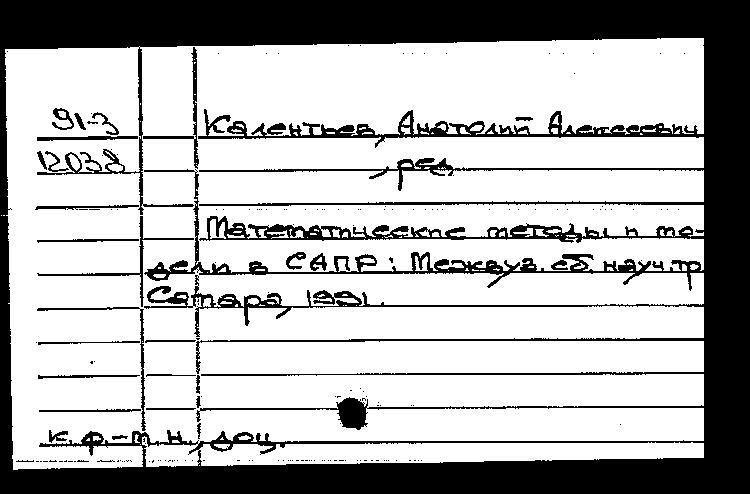 91-3 Калентьев, Анатолий Алексеевич
12038 , ред.
Математические методы и мо-
дели в САПР: Межвуз. сб. науч. тр
Самара, 1991.
к. ф.-м. н., доц.